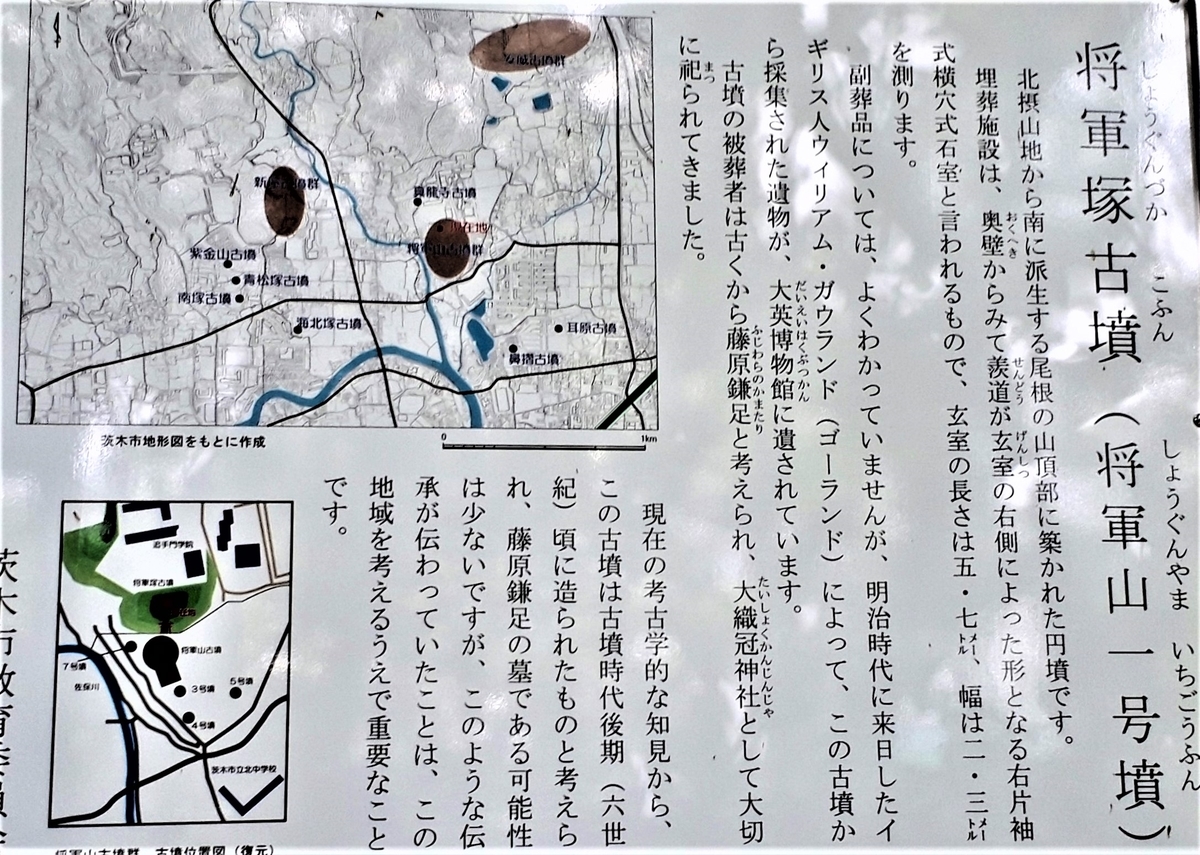 しょうぐんづか　こふん　しょうぐんやま　いちごうふん
将軍塚古墳（将軍山一号墳）
北摂山地から南に派生する尾根の山頂部に築かれた円墳です。
埋葬施設は、奥壁からみて羨道が玄室の右側によった形となる右片袖
おくへき　せんどう　げんしつ
式横穴式石室と言われるもので、玄室の長さは五・七メートル、幅は二・三メートル
を測ります。
副葬品については、よくわかっていませんが、明治時代に来日したイ
ギリス人ウィリアム・ガウランド（ゴーランド）によって、この古墳か
ら採集された遺物が、大英博物館に遺されています。
だいえいはくぶつかん
古墳の被葬者は古くから藤原鎌足と考えられ、大織冠神社として大切
ふじわらのかまたり　たいしょくかんじんじゃ
に祀られてきました。
まつ
現在の考古学的な知見から、
この古墳は古墳時代後期（六世
紀）頃に造られたものと考えら
れ、藤原鎌足の墓である可能性
は少ないですが、このような伝
承が伝わっていたことは、この
地域を考えるうえで重要なこと
です。
安威古墳群
新屋古墳群
真龍寺古墳
現在地
将軍山古墳群
紫金山古墳
青松塚古墳
南塚古墳
海北塚古墳
耳原古墳
鼻摺古墳
茨木市地形図をもとに作成
0
1km
追手門学院
将軍塚古墳
現在地
将軍山古墳
7号墳
佐保川
3号墳
5号墳
4号墳
茨木市立北中学校
将軍山古墳群　古墳位置図（復元）
茨木市教育委員会